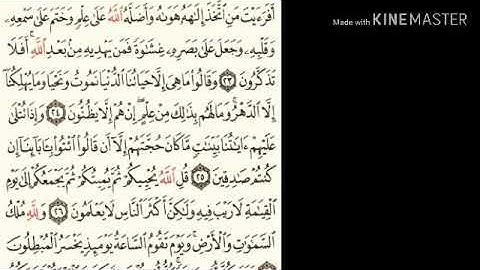 أَفَرَءَيْتَ مَنِ ٱتَّخَذَ إِلَٰهَهُۥ هَوَىٰهُ وَأَضَلَّهُ ٱللَّهُ عَلَىٰ عِلْمٍ وَخَتَمَ عَلَىٰ سَمْعِهِۦ
وَقَلْبِهِۦ وَجَعَلَ عَلَىٰ بَصَرِهِۦ غِشَٰوَةً فَمَن يَهْدِيهِ مِنۢ بَعْدِ ٱللَّهِ ۚ أَفَلَا
تَذَكَّرُونَ ٢٣ وَقَالُوا۟ مَا هِىَ إِلَّا حَيَاتُنَا ٱلدُّنْيَا نَمُوتُ وَنَحْيَا وَمَا يُهْلِكُنَآ
إِلَّا ٱلدَّهْرُ ۚ وَمَا لَهُم بِذَٰلِكَ مِنْ عِلْمٍ ۖ إِنْ هُمْ إِلَّا يَظُنُّونَ ٢٤ وَإِذَا تُتْلَىٰ
عَلَيْهِمْ ءَايَٰتُنَا بَيِّنَٰتٍ مَّا كَانَ حُجَّتَهُمْ إِلَّآ أَن قَالُوا۟ ٱئْتُوا۟ بِـَٔابَآئِنَآ إِن
كُنتُمْ صَٰدِقِينَ ٢٥ قُلِ ٱللَّهُ يُحْيِيكُمْ ثُمَّ يُمِيتُكُمْ ثُمَّ يَجْمَعُكُمْ إِلَىٰ يَوْمِ
ٱلْقِيَٰمَةِ لَا رَيْبَ فِيهِ وَلَٰكِنَّ أَكْثَرَ ٱلنَّاسِ لَا يَعْلَمُونَ ٢٦ وَلِلَّهِ مُلْكُ
ٱلسَّمَٰوَٰتِ وَٱلْأَرْضِ ۚ وَيَوْمَ تَقُومُ ٱلسَّاعَةُ يَوْمَئِذٍ يَخْسَرُ ٱلْمُبْطِلُونَ
Made with KINEMASTER